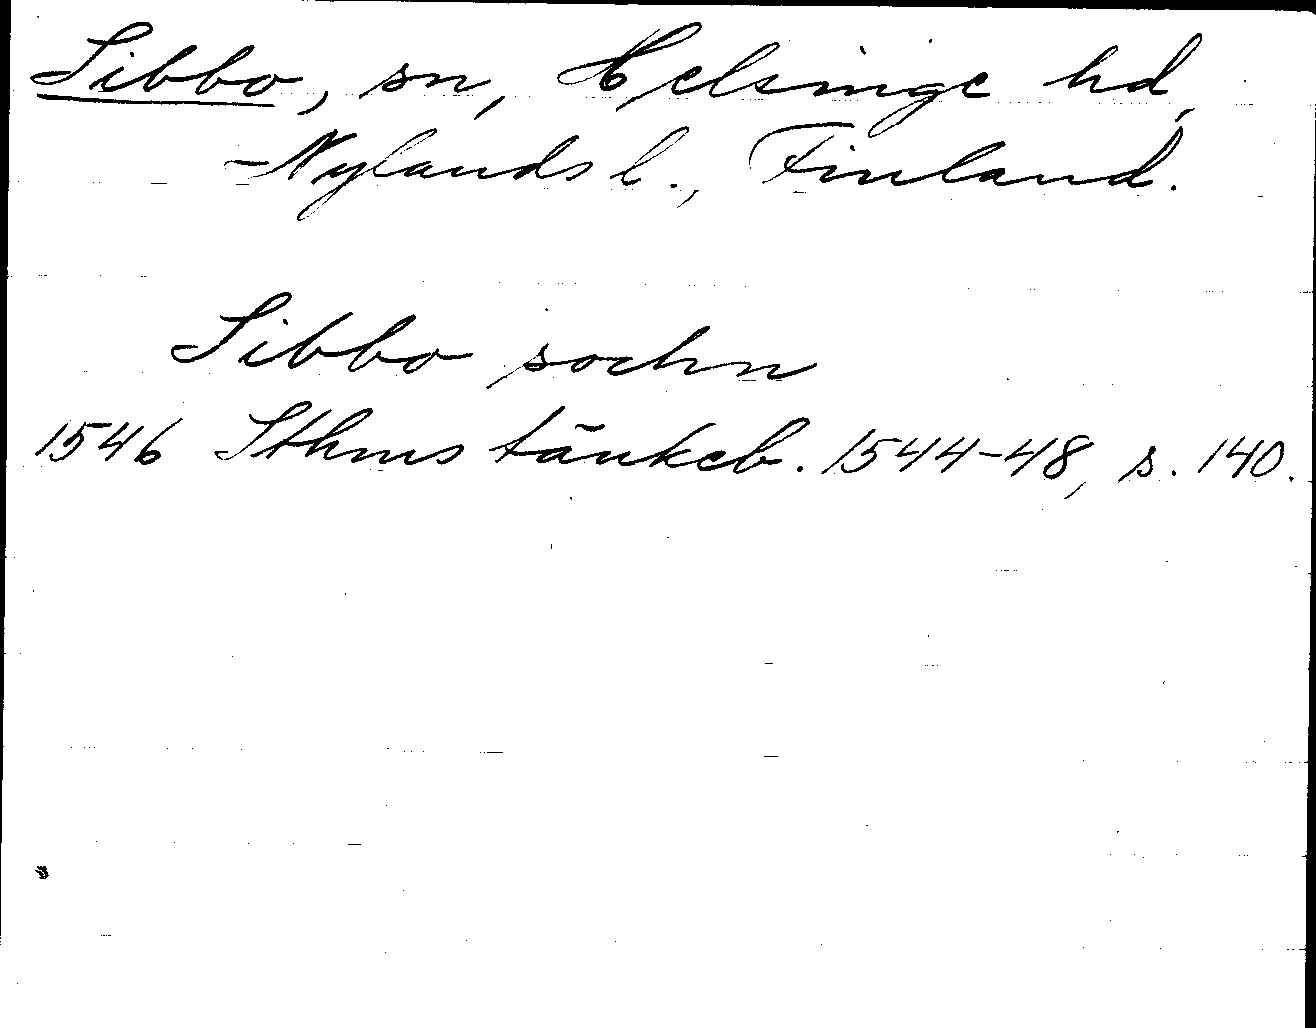 Sibbo, sn, Helsinge hd,
Nylands l., Finland.
Sibbo sochn
1546 Sthms tänkeb. 1544-48, s. 140.